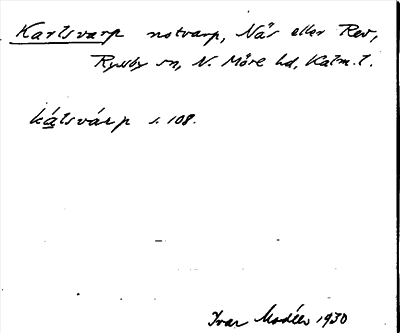 Karlsvarp notvarp, Näs eller Rev,
Ryssby sn, N. Möre hd, Kalm. l.
kátsvárp s. 108.
Ivar Modéer 1930